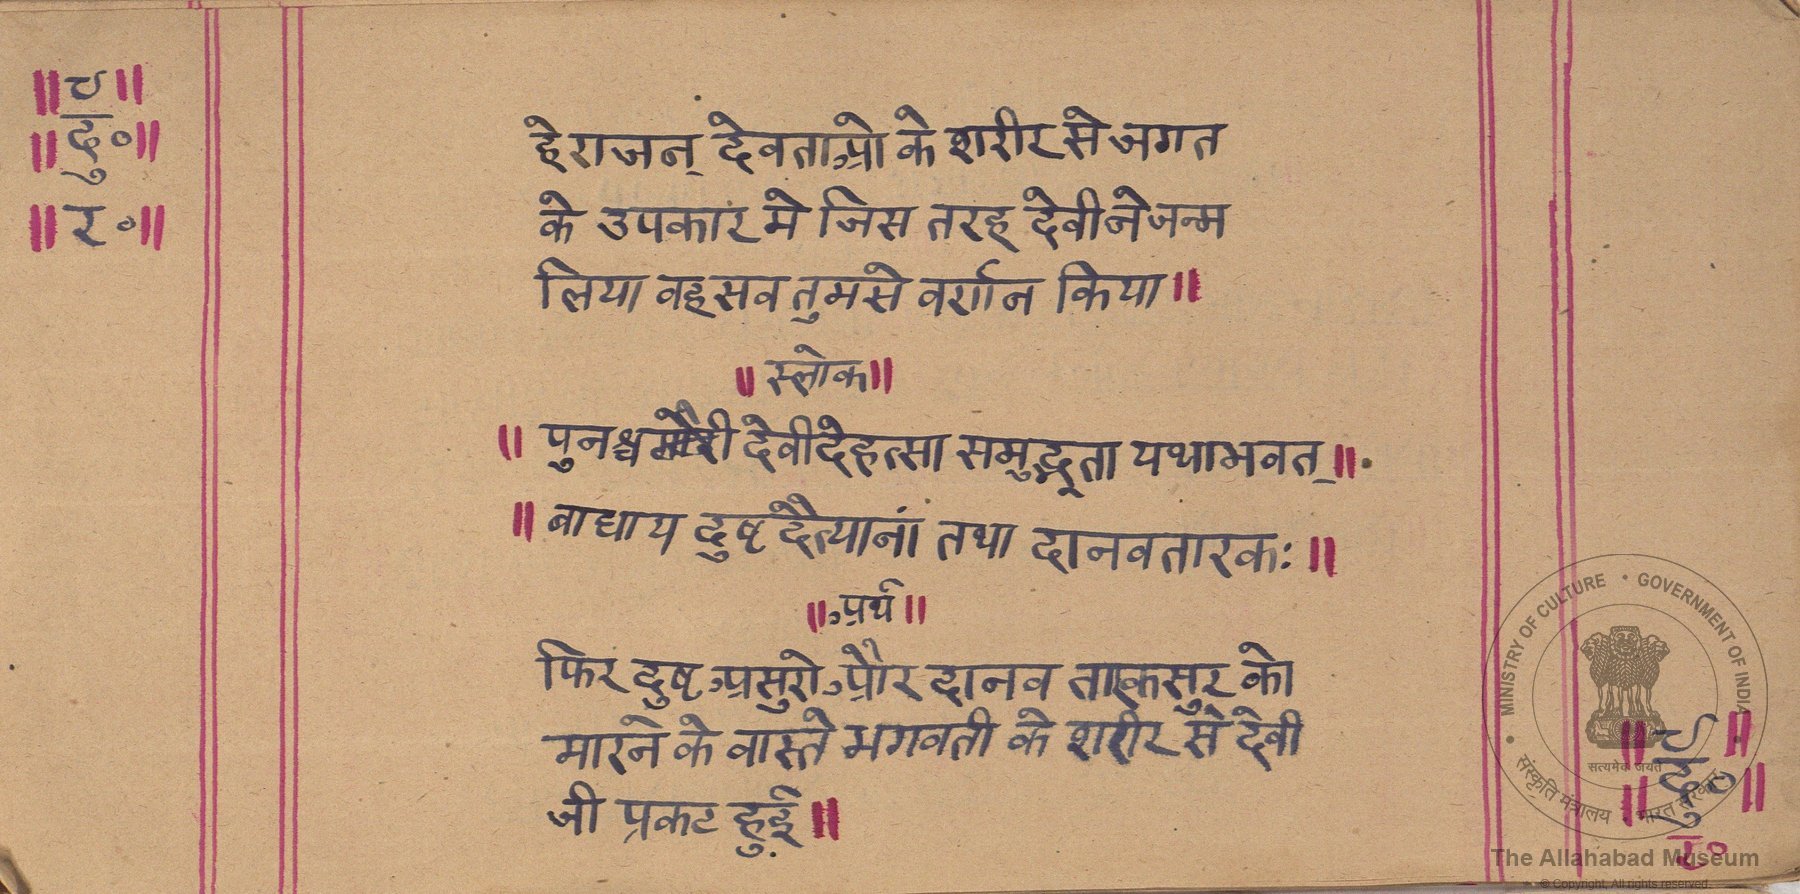 ॥ च ॥
॥ दु॰ ॥
॥ र॰ ॥
हे राजन् देवताओ के शरीर से जगत
के उपकार मे जिस तरह देवी ने जन्म
लिया वह सव तुम से वर्णन किया ॥
॥ स्लोक ॥
॥ पुनश्च गौरी देवी देहत्सा समुद्भूता यथाभवत् ॥
॥ वाधाय दुष्ट दैत्यानां तथा दानव तारकः ॥
॥ अर्थ ॥
फिर दुष्ट असुरो और दानव तारकसुर को
मारने के वास्ते भगवती के शरीर से देवी
जी प्रकट हुई ॥
॥ च ॥
॥ दु॰ ॥
र॰
MINISTRY OF CULTURE • GOVERNMENT OF INDIA
सत्यमेव जयते
संस्कृति मंत्रालय • भारत सरकार
The Allahabad Museum
© Copyright, All rights reserved